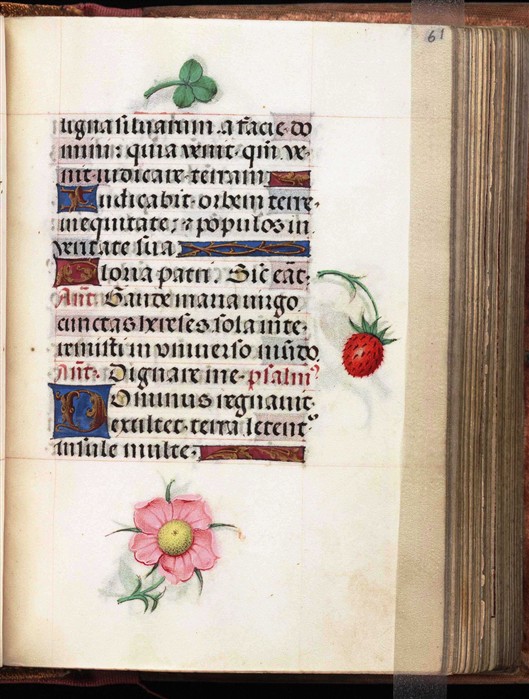 61
ligna siluarum. a facie. do
mini: quia venit. qm̄ ve-
nit. iudicare. terram
Iudicabit. orbem terre.
in equitate: ⁊ populos in
veritate sua
Gloria patri. Sic̄ erāt.
Ant̄. Gaude maria virgo
cunctas hereses. sola inte-
remisti in vniuerso mūdo.
Ant̄. Dignare me. psalm⁹
Dominus regnauit.
exultet. terra letent᷑
insule multe.